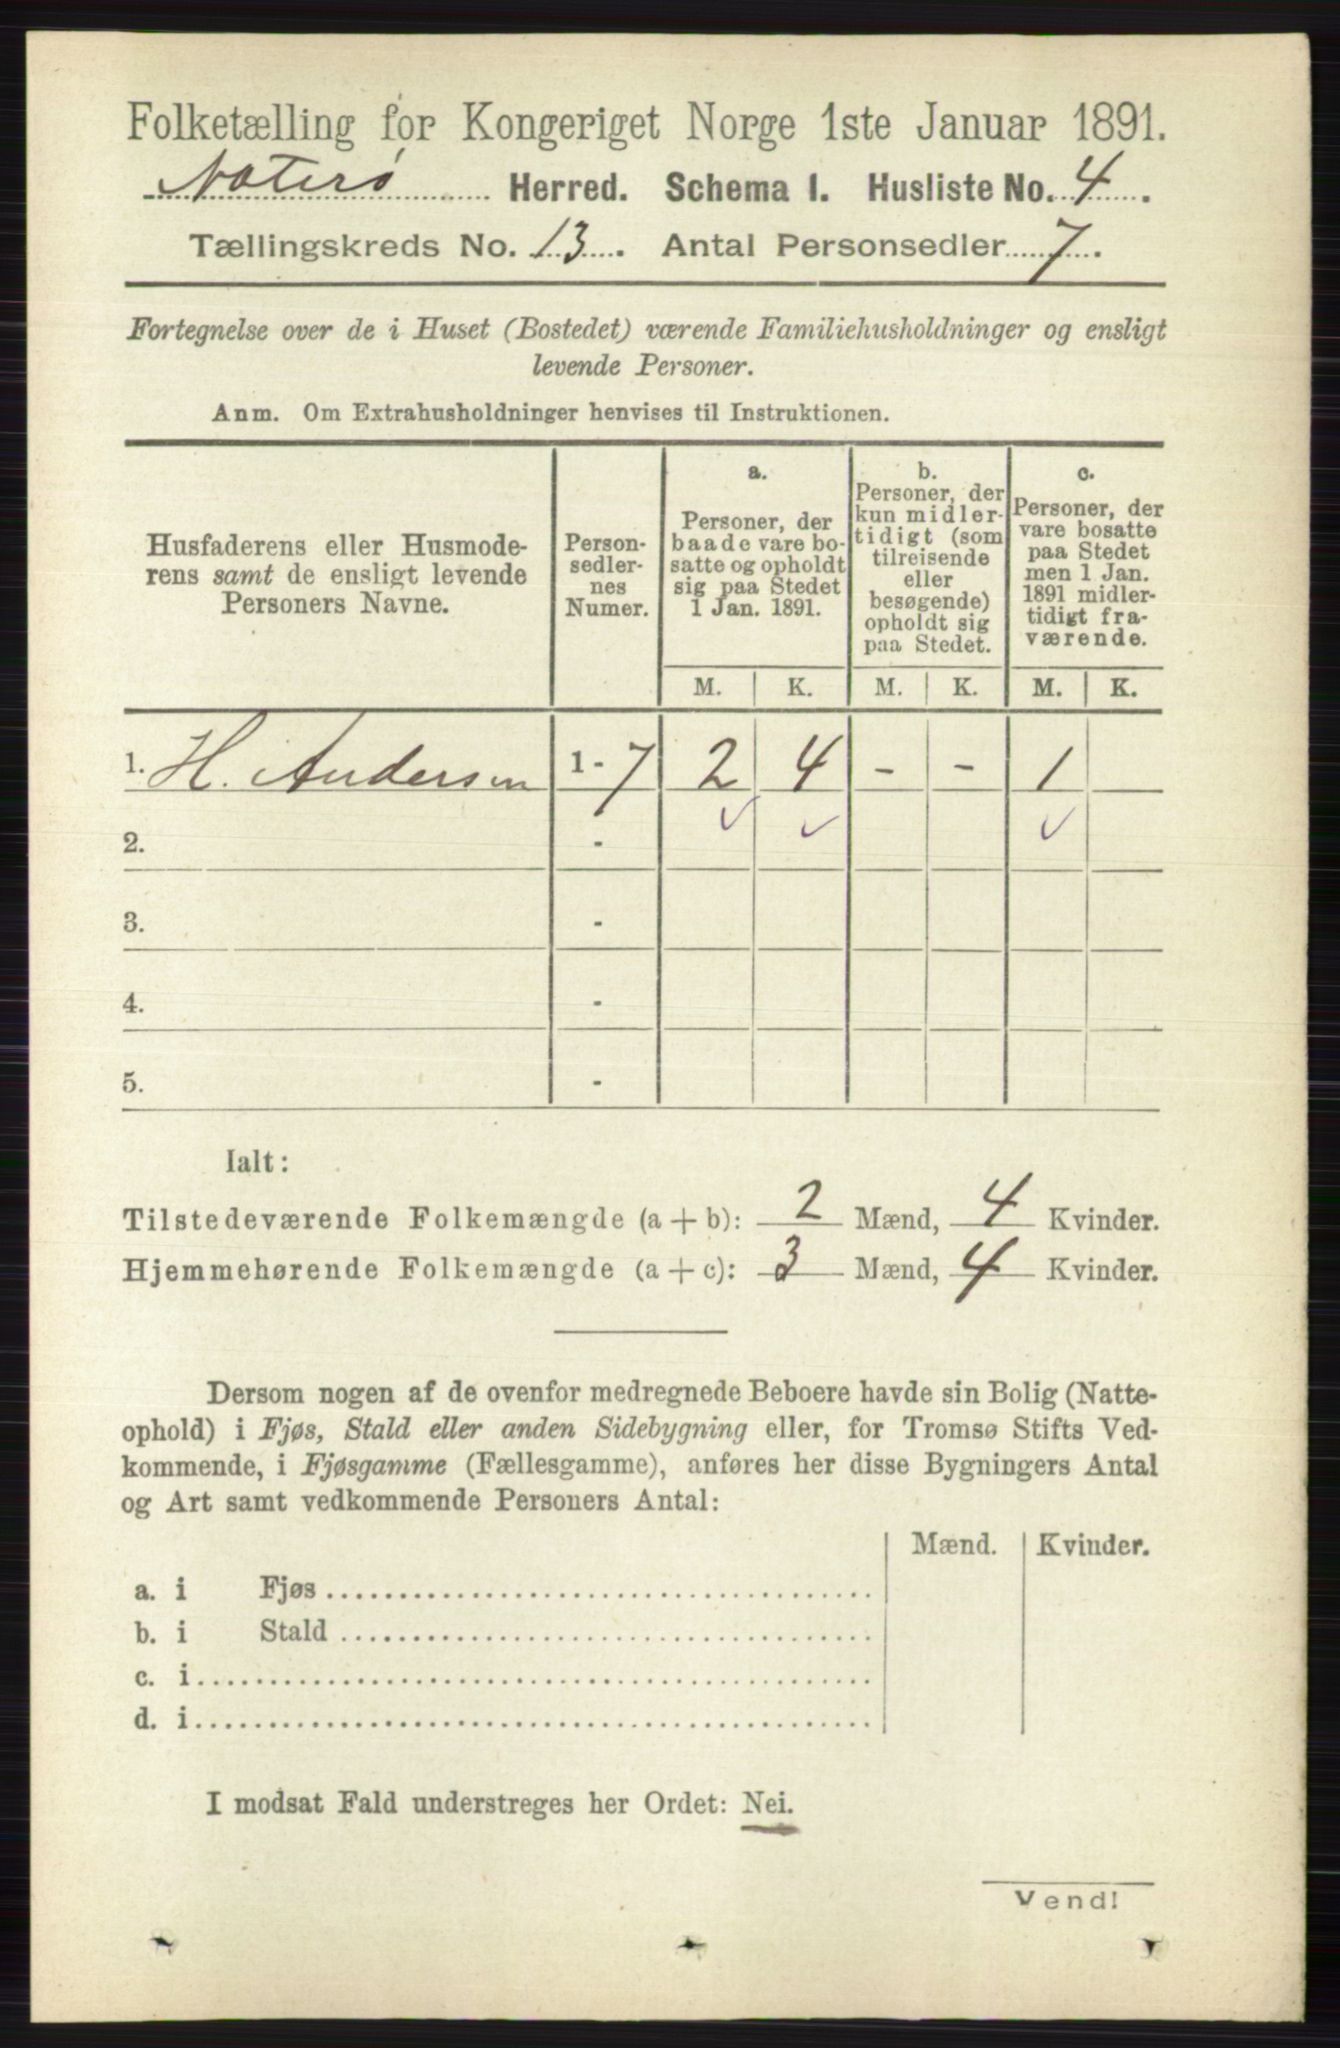 Folketælling for Kongeriget Norge 1ste Januar 1891.
Nøterø Herred. Schema I. Husliste No. 4.
Tællingskreds No. 13. Antal Personsedler 7.
Fortegnelse over de i Huset (Bostedet) værende Familiehusholdninger og ensligt
levende Personer.
Anm. Om Extrahusholdninger henvises til Instruktionen.
Husfaderens eller Husmode-
rens samt de ensligt levende
Personers Navne.
Person-
sedler-
nes
Numer.
a.
Personer, der
baade vare bo-
satte og opholdt
sig paa Stedet
1 Jan. 1891.
b.
Personer, der
kun midler-
tidigt (som
tilreisende
eller
besøgende)
opholdt sig
paa Stedet.
c.
Personer, der
vare bosatte
paa Stedet
men 1 Jan.
1891 midler-
tidigt fra-
værende.
M. K. M. K. M. K.
1. H. Andersen 1 - 7 2 4 - - 1
2. -
3. -
4. -
5. -
Ialt:
Tilstedeværende Folkemængde (a + b): 2 Mænd, 4 Kvinder.
Hjemmehørende Folkemængde (a + c): 3 Mænd, 4 Kvinder.
Dersom nogen af de ovenfor medregnede Beboere havde sin Bolig (Natte-
ophold) i Fjøs, Stald eller anden Sidebygning eller, for Tromsø Stifts Ved-
kommende, i Fjøsgamme (Fællesgamme), anføres her disse Bygningers Antal
og Art samt vedkommende Personers Antal:
Mænd. Kvinder.
a. i Fjøs
b. i Stald
c. i
d. i
I modsat Fald understreges her Ordet: Nei.
Vend!